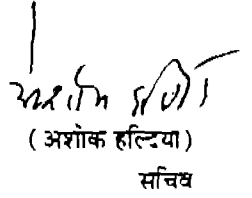 ( अशोक हल्दिया )
सचिव